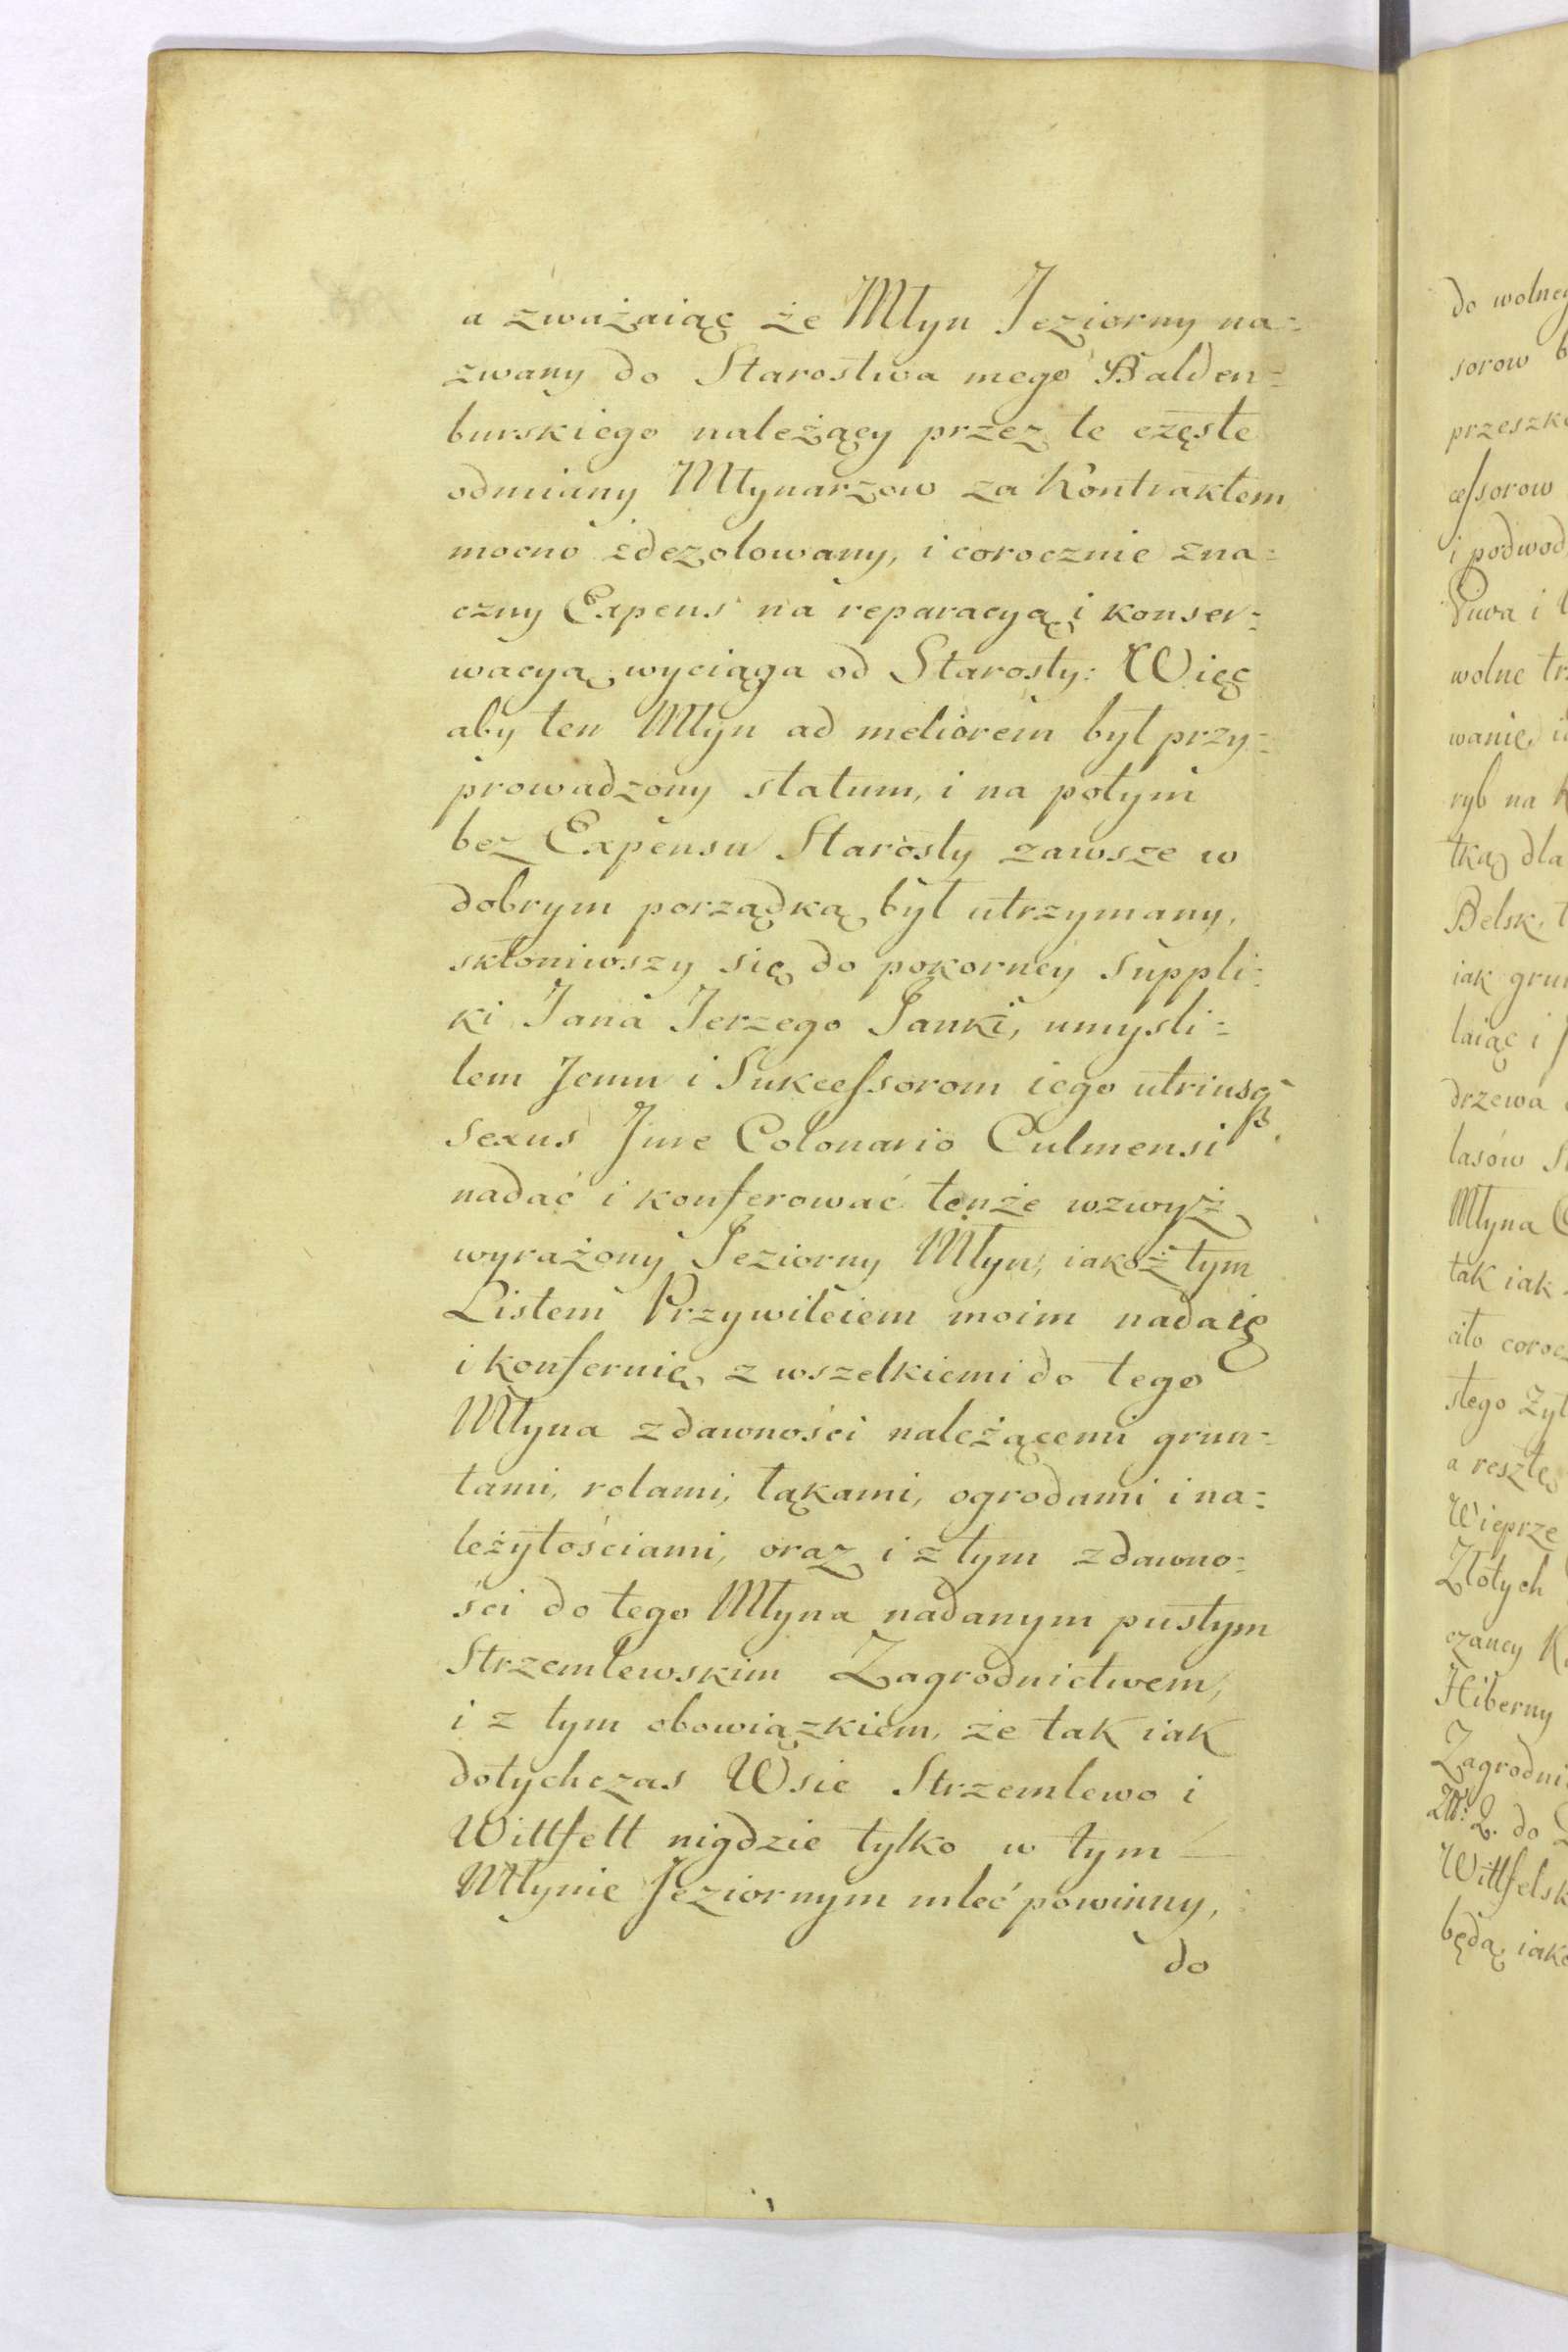 a zważaiąc że Młyn Jeziorny na=
zwany do Starostwa mego Balden=
burskiego należący przez te częste
odmiany Młynarzow za Kontraktem
mocno zdezolowany, i corocznie zna=
czny Expens na reparacyą i konser=
wacyą wyciąga od Starosty: Więc
aby ten Młyn ad meliorem był przy=
prowadzony statum, i na potym
bez Expensu Starosty zawsze w
dobrym porządką był utrzymany,
skłoniwszy się do pokorney suppli=
ki Jana Jerzego Janki, umysli=
lem Jemu i Sukcefsorom iego utriusq
sexus Jure Colonario Culmensi
nadać i konferować tenże wzwyż
wyrażony Jeziorny Młyn, iakoż tym
Listem Przywileiem moim nadaię
i konferuię z wszelkiemi do tego
Młyna zdawności należącemi grun=
tami, rolami, łąkami, ogrodami i na=
leżytościami, oraz i z tym zdawno=
ści do tego Młyna nadanym pustym
Strzemlewskim Zagrodnictwem,
i z tym obowiązkiem, że tak iak
dotychczas Wsie Strzemlewo i
Wittfelt nigdzie tylko w tym
Młynie Jeziornym mleć powinny,
do
do wolneg
sorow b
przeszko
cefsorow
i podwod
Piwa i
wolne tr
wanie,
ryb na K
tką dla
Belsk,
iak grun
laiąc i
drzewa
lasów S
Młyna C
tak iak
ato coroc
stego Zyt
a resztę
Wieprze
Złotych
czaney K
Hiberny
Zagrodni
2. do
Wittfelsk
będą iako